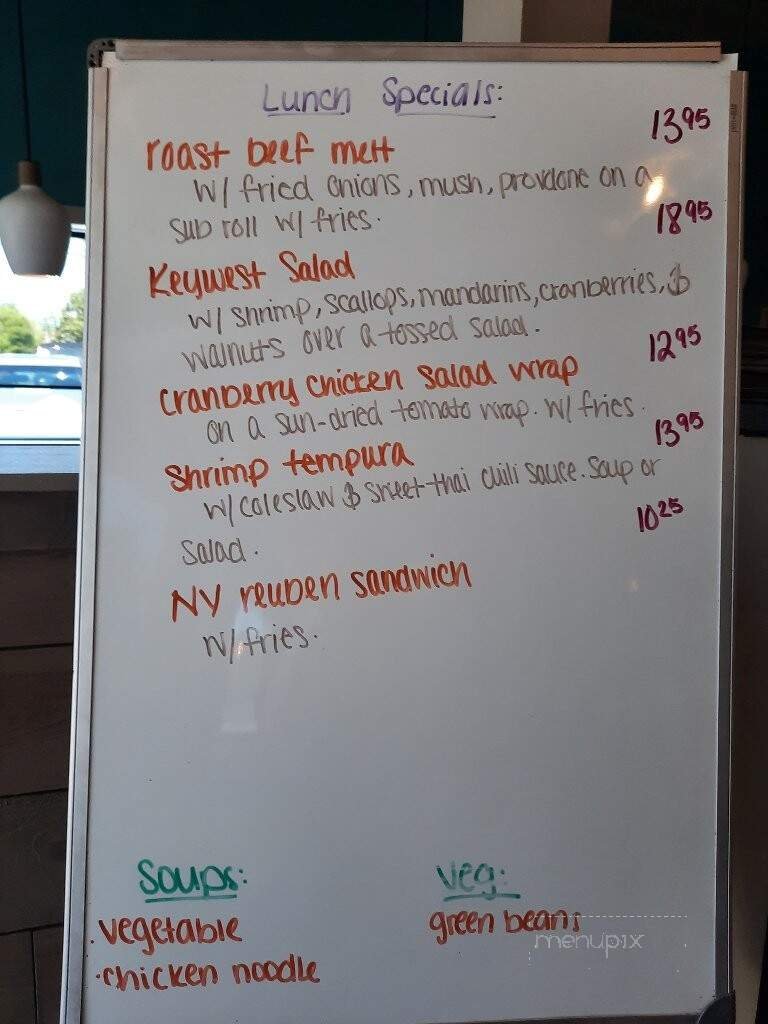 Lunch Specials:
roast beef melt 13 95
w/ fried onions, mush, provolone on a
sub roll w/ fries.
Keywest Salad 18 95
w/ shrimp, scallops, mandarins, cranberries, &
walnuts over a tossed salad.
cranberry chicken salad wrap 12 95
on a sun-dried tomato wrap. w/ fries.
shrimp tempura 13 95
w/ coleslaw & sweet thai chili sauce. Soup or
salad.
NY reuben sandwich 10 25
w/ fries.
Soups: Veg:
· vegetable green beans
· chicken noodle
menupix